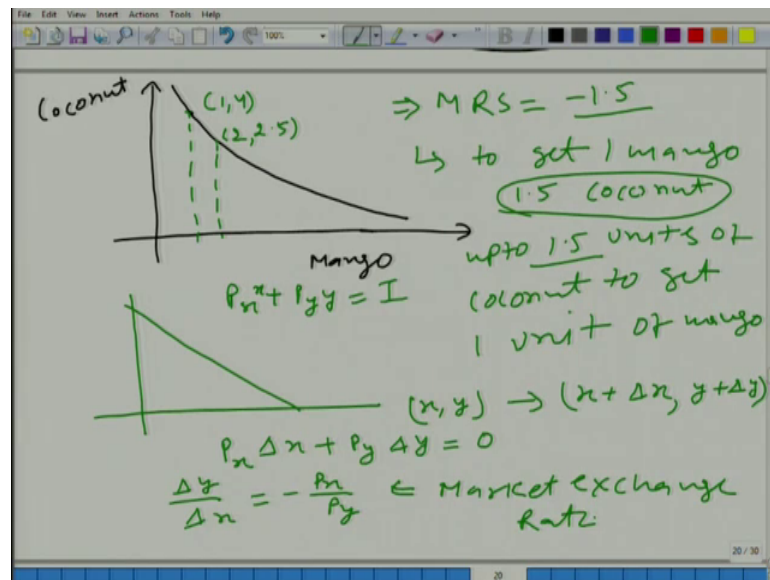 File Edit View Insert Actions Tools Help
100%
B I
Coconut
(1,4)
(2,2.5)
Mango
⇒ MRS = -1.5
↳ to get 1 mango
1.5 coconut
upto 1.5 units of
coconut to get
1 unit of mango
Pₓx + Pyy = I
(x, y) → (x + Δx, y + Δy)
Pₓ Δx + Py Δy = 0
Δy/Δx = - Pₓ/Py ⇐ Market exchange
Rate.
20 / 30
20